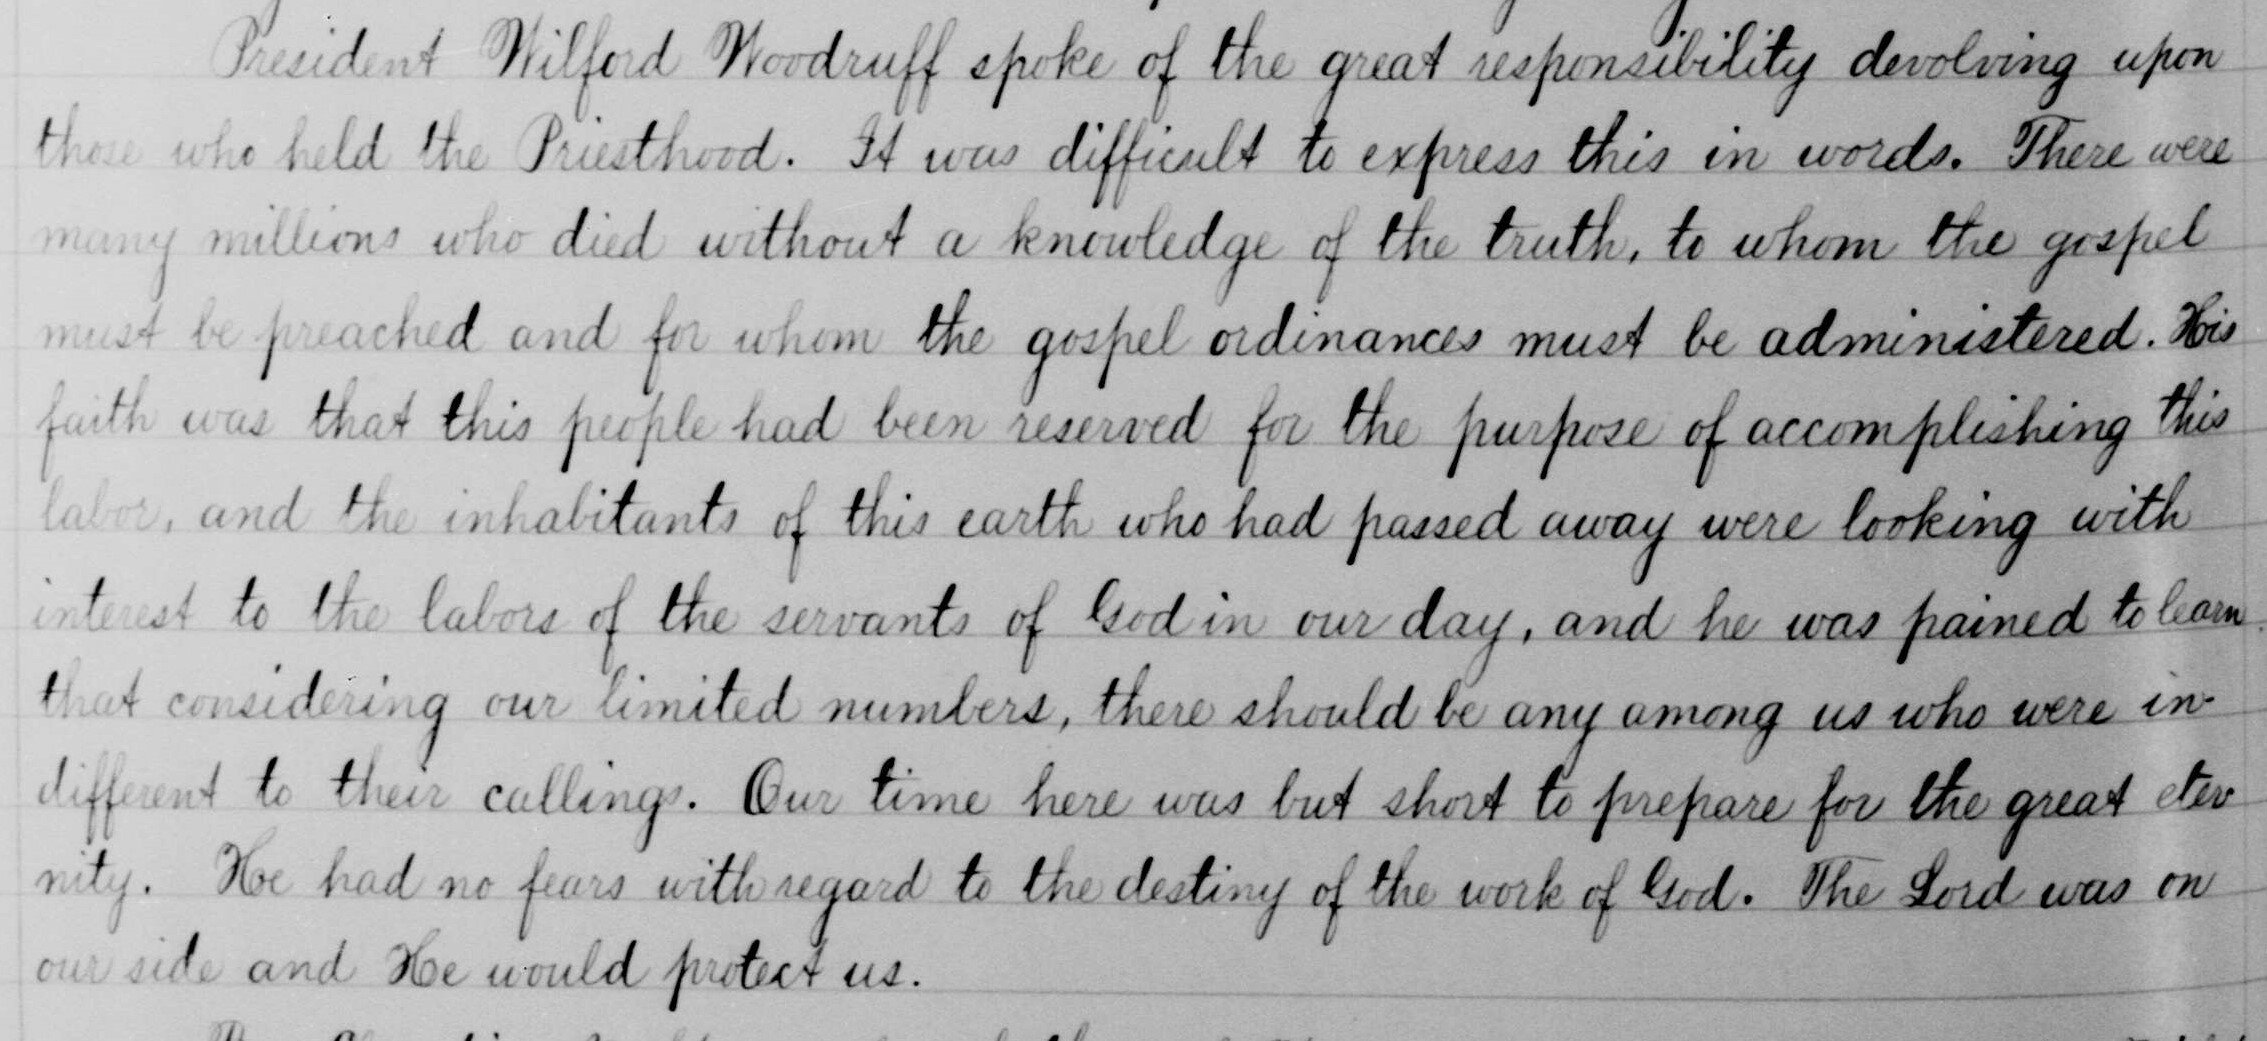 President Wilford Woodruff spoke of the great responsibility devolving upon
those who held the Priesthood. It was difficult to express this in words. There were
many millions who died without a knowledge of the truth, to whom the gospel
must be preached and for whom the gospel ordinances must be administered. His
faith was that this people had been reserved for the purpose of accomplishing this
labor, and the inhabitants of this earth who had passed away were looking with
interest to the labors of the servants of God in our day, and he was pained to learn
that considering our limited numbers, there should be any among us who were in-
different to their callings. Our time here was but short to prepare for the great eter
nity. He had no fears with regard to the destiny of the work of God. The Lord was on
our side and He would protect us.